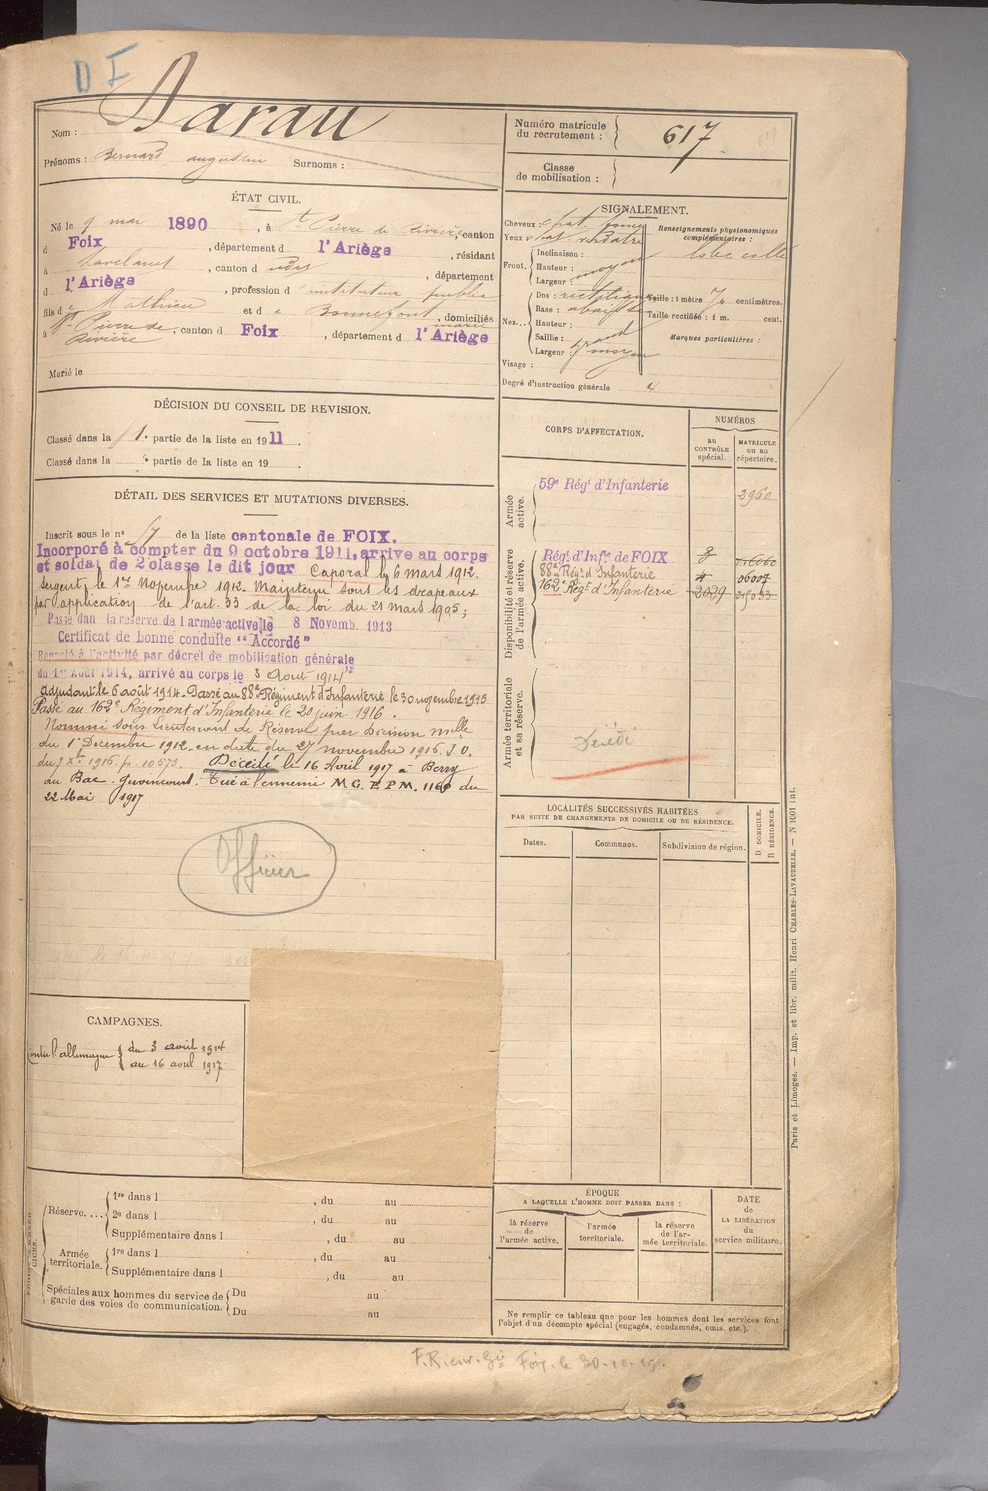 D I
Nom : Darau
Prénoms : Bernard augustin Surnoms :
Numéro matricule du recrutement : 617
Classe de mobilisation :
ÉTAT CIVIL.
Né le 9 mai 1890, à St Pierre de Rivière, canton
d Foix, département d l'Ariège, résidant
à Lavelanet, canton d udis, département
d l'Ariège, profession d instituteur public
fils d Mathieu et d e Bonnefont marie, domiciliés
à St Pierre de Rivière, canton d Foix, département d l'Ariège
Marié le
SIGNALEMENT.
Cheveux : chat
Yeux : chat verdâtre
Front. Inclinaison :
Hauteur : moyen
Largeur :
Nez. Dos : rectiligne
Base : abaissée
Hauteur :
Saillie :
Largeur : moyen
Visage :
Renseignements physionomiques complémentaires :
lobe collé
Taille : 1 mètre centimètres.
Taille rectifiée : 1 m. cent.
Marques particulières :
Degré d'instruction générale 4
DÉCISION DU CONSEIL DE REVISION.
Classé dans la 1e partie de la liste en 1911.
Classé dans la e partie de la liste en 19 .
DÉTAIL DES SERVICES ET MUTATIONS DIVERSES.
Inscrit sous le n° 57 de la liste cantonale de FOIX.
Incorporé à compter du 9 octobre 1911, arrive au corps
et soldat de 2e classe le dit jour Caporal le 6 mars 1912.
Sergent le 1er Novembre 1912. Maintenu sous les drapeaux
par application de l'art. 33 de la loi du 21 mars 1905;
Passé dans la réserve de l'armée active le 8 Novemb. 1913
Certificat de bonne conduite "Accordé"
Rappelé à l'activité par décret de mobilisation générale
du 1er Août 1914, arrivé au corps le 3 Aout 1914
adjudant le 6 août 1914. Passé au 88e Régiment d'Infanterie le 30 novembre 1915
Passé au 162e Régiment d'Infanterie le 20 juin 1916.
Nommé sous Lieutenant de Réserve par Décision mlle
du 1er Décembre 1912. en date du 27 novembre 1916. J.O.
du 7 Xe 1916. p. 10573. Décédé le 16 Avril 1917 à Berry
au Bac. Guvincourt. Tué à l'ennemi M.G. E.P.M. du
22 Mai 1917
Officier
CORPS D'AFFECTATION.
NUMÉROS
au CONTRÔLE spécial.
MATRICULE ou au répertoire.
Armée active.
59e Régt d'Infanterie 2960
Disponibilité et réserve de l'armée active.
Régt d'Infie de FOIX
88e Régt d'Infanterie 06007
162e Régt d'Infanterie 2029
Armée territoriale et sa réserve.
Décédé
LOCALITÉS SUCCESSIVES HABITÉES
PAR SUITE DE CHANGEMENTS DE DOMICILE OU DE RÉSIDENCE.
Dates. Communes. Subdivision de région. D. DOMICILE. R. RÉSIDENCE.
CAMPAGNES.
contre l'allemagne du 3 août 1914
au 16 avril 1917
Réserve.... 1re dans l , du au
2e dans l , du au
Supplémentaire dans l , du au
Armée territoriale. 1re dans l , du au
Supplémentaire dans l , du au
Spéciales aux hommes du service de garde des voies de communication. Du au
Du au
ÉPOQUE
A LAQUELLE L'HOMME DOIT PASSER DANS :
la réserve de l'armée active.
l'armée territoriale.
la réserve de l'armée territoriale.
DATE de LA LIBÉRATION du service militaire.
Ne remplir ce tableau que pour les hommes dont les services font
l'objet d'un décompte spécial (engagés, condamnés, omis. etc.).
Paris et Limoges. — Imp. et libr. milit. Henri CHARLES-LAVAUZELLE. — N 1001 int.
Foix. le 30-10-19.